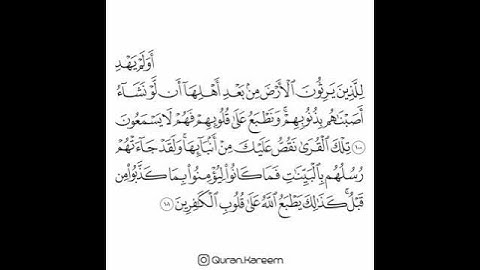 أَوَلَمْ يَهْدِ
لِلَّذِينَ يَرِثُونَ ٱلْأَرْضَ مِنۢ بَعْدِ أَهْلِهَآ أَن لَّوْ نَشَآءُ
أَصَبْنَٰهُم بِذُنُوبِهِمْ ۚ وَنَطْبَعُ عَلَىٰ قُلُوبِهِمْ فَهُمْ لَا يَسْمَعُونَ
١٠٠ تِلْكَ ٱلْقُرَىٰ نَقُصُّ عَلَيْكَ مِنْ أَنۢبَآئِهَا ۚ وَلَقَدْ جَآءَتْهُمْ
رُسُلُهُم بِٱلْبَيِّنَٰتِ فَمَا كَانُوا۟ لِيُؤْمِنُوا۟ بِمَا كَذَّبُوا۟ مِن
قَبْلُ ۚ كَذَٰلِكَ يَطْبَعُ ٱللَّهُ عَلَىٰ قُلُوبِ ٱلْكَٰفِرِينَ ١٠١
Quran.Kareem